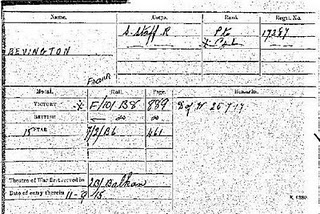 Name. Corps. Rank. Regtl. No.
S. Staff R Pte 17287
BEVINGTON
Frank
Medal. Roll. Page. Remarks.
VICTORY E/101 B8 889 D of W 26 7 17
BRITISH do do
15 STAR 7/3/B6 461
Theatre of War first served in (2B) Balkan
Date of entry therein 11-9-15